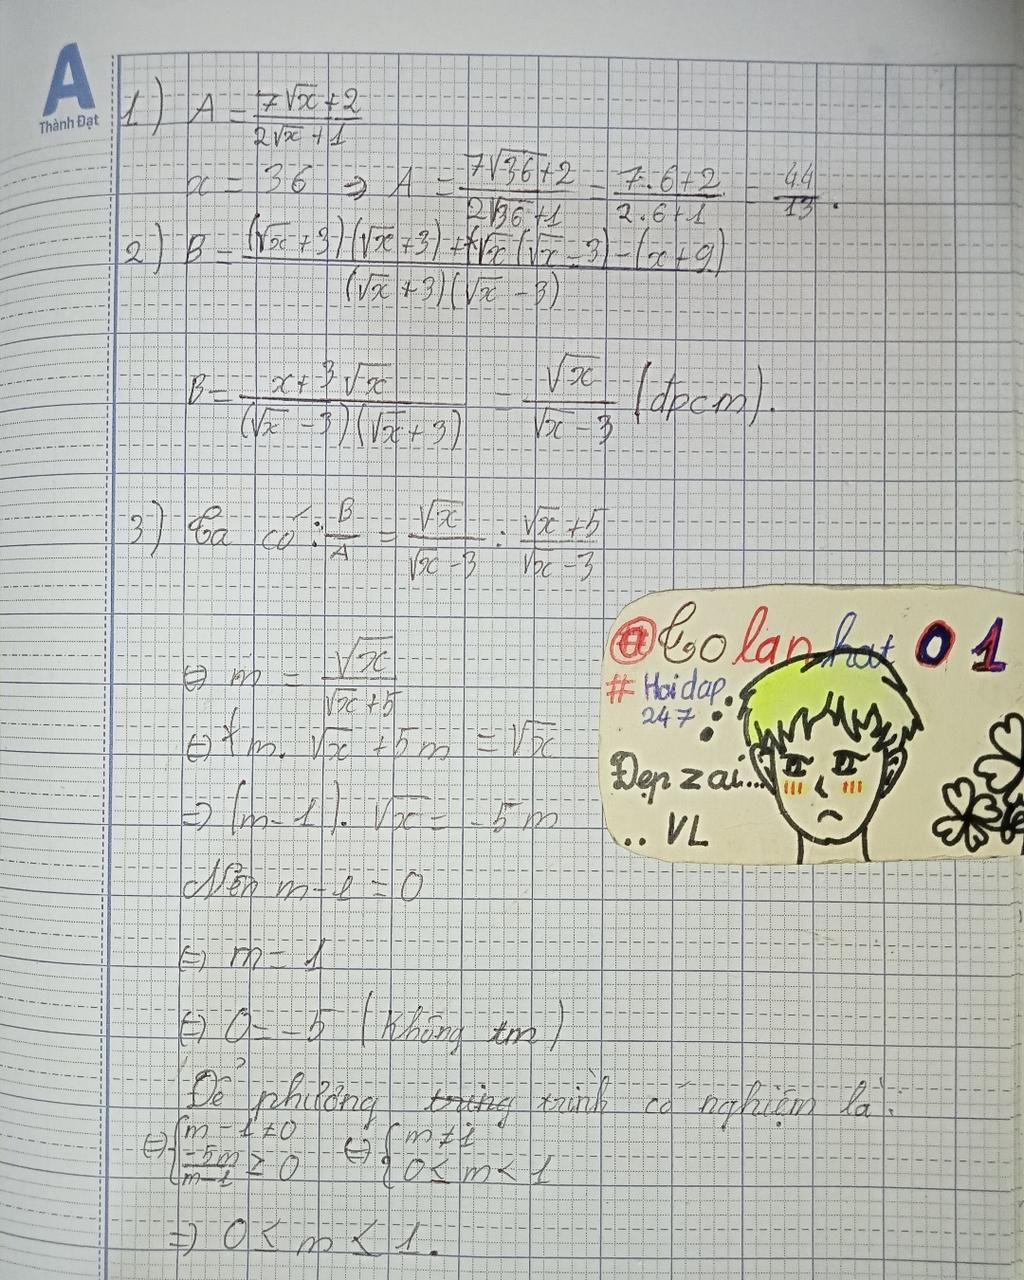 A
Thành Đạt
1) A = (7√x + 2)/(2√x + 1)
x = 36 ⇒ A = (7√36 + 2)/(2√36 + 1) = (7.6 + 2)/(2.6 + 1) = 44/13.
2) B = ((√x + 3)(√x + 3) + √x(√x - 3) - (x + 9))/((√x + 3)(√x - 3))
B = (x + 3√x)/((√x - 3)(√x + 3)) = √x/(√x - 3) (đpcm).
3) Ta có: B/A = √x/(√x - 3) : (√x + 5)/(√x - 3)
⇔ m = √x/(√x + 5)
⇔ m.√x + 5m = √x
⇒ (m - 1).√x = -5m
Nên m - 1 = 0
⇔ m = 1
⇔ 0 = -5 (không tm)
Để phương tring trình có nghiệm là:
⇔ { m - 1 ≠ 0 ; -5m/(m-1) ≥ 0 ⇔ { m ≠ 1 ; 0 ≤ m < 1
⇒ 0 ≤ m < 1.
@Tolanhat01
# Hoidap
247
Đẹp zai...
.. VL